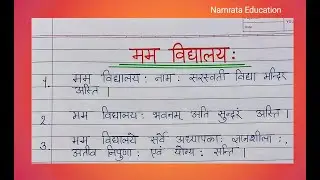 Namrata Education
मम विद्यालयः
1. मम विद्यालयः नामः सरस्वती विद्या मन्दिर
अस्ति ।
2 मम विद्यालयः भवनम् अति सुन्दरं अस्ति ।
3. मम विद्यालये सर्वे अध्यापकाः ज्ञानशीलाः,
अतीव निपुणाः एवं योग्यः सन्ति ।